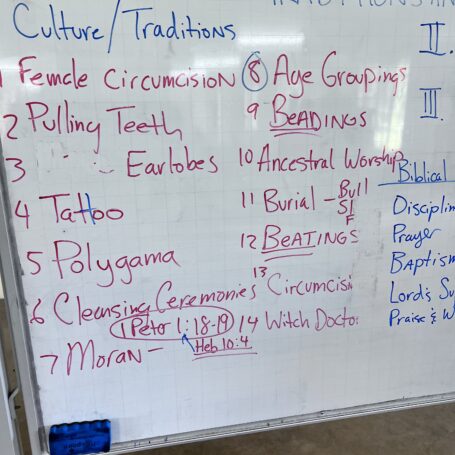 Culture/Traditions
1 Female Circumcision
2 Pulling Teeth
3 Earlobes
4 Tattoo
5 Polygama
6 Cleansing Ceremonies
1 Peter 1:18-19
Heb 10:4
7 Moran -
8 Age Groupings
9 BEADINGS
10 Ancestral Worship
11 Burial - Bull
F
12 BEATINGS
13 Circumcisi
14 Witch Docto
II.
III.
Biblical
Disciplin
Prayer
Baptism
Lord's Su
Praise & W